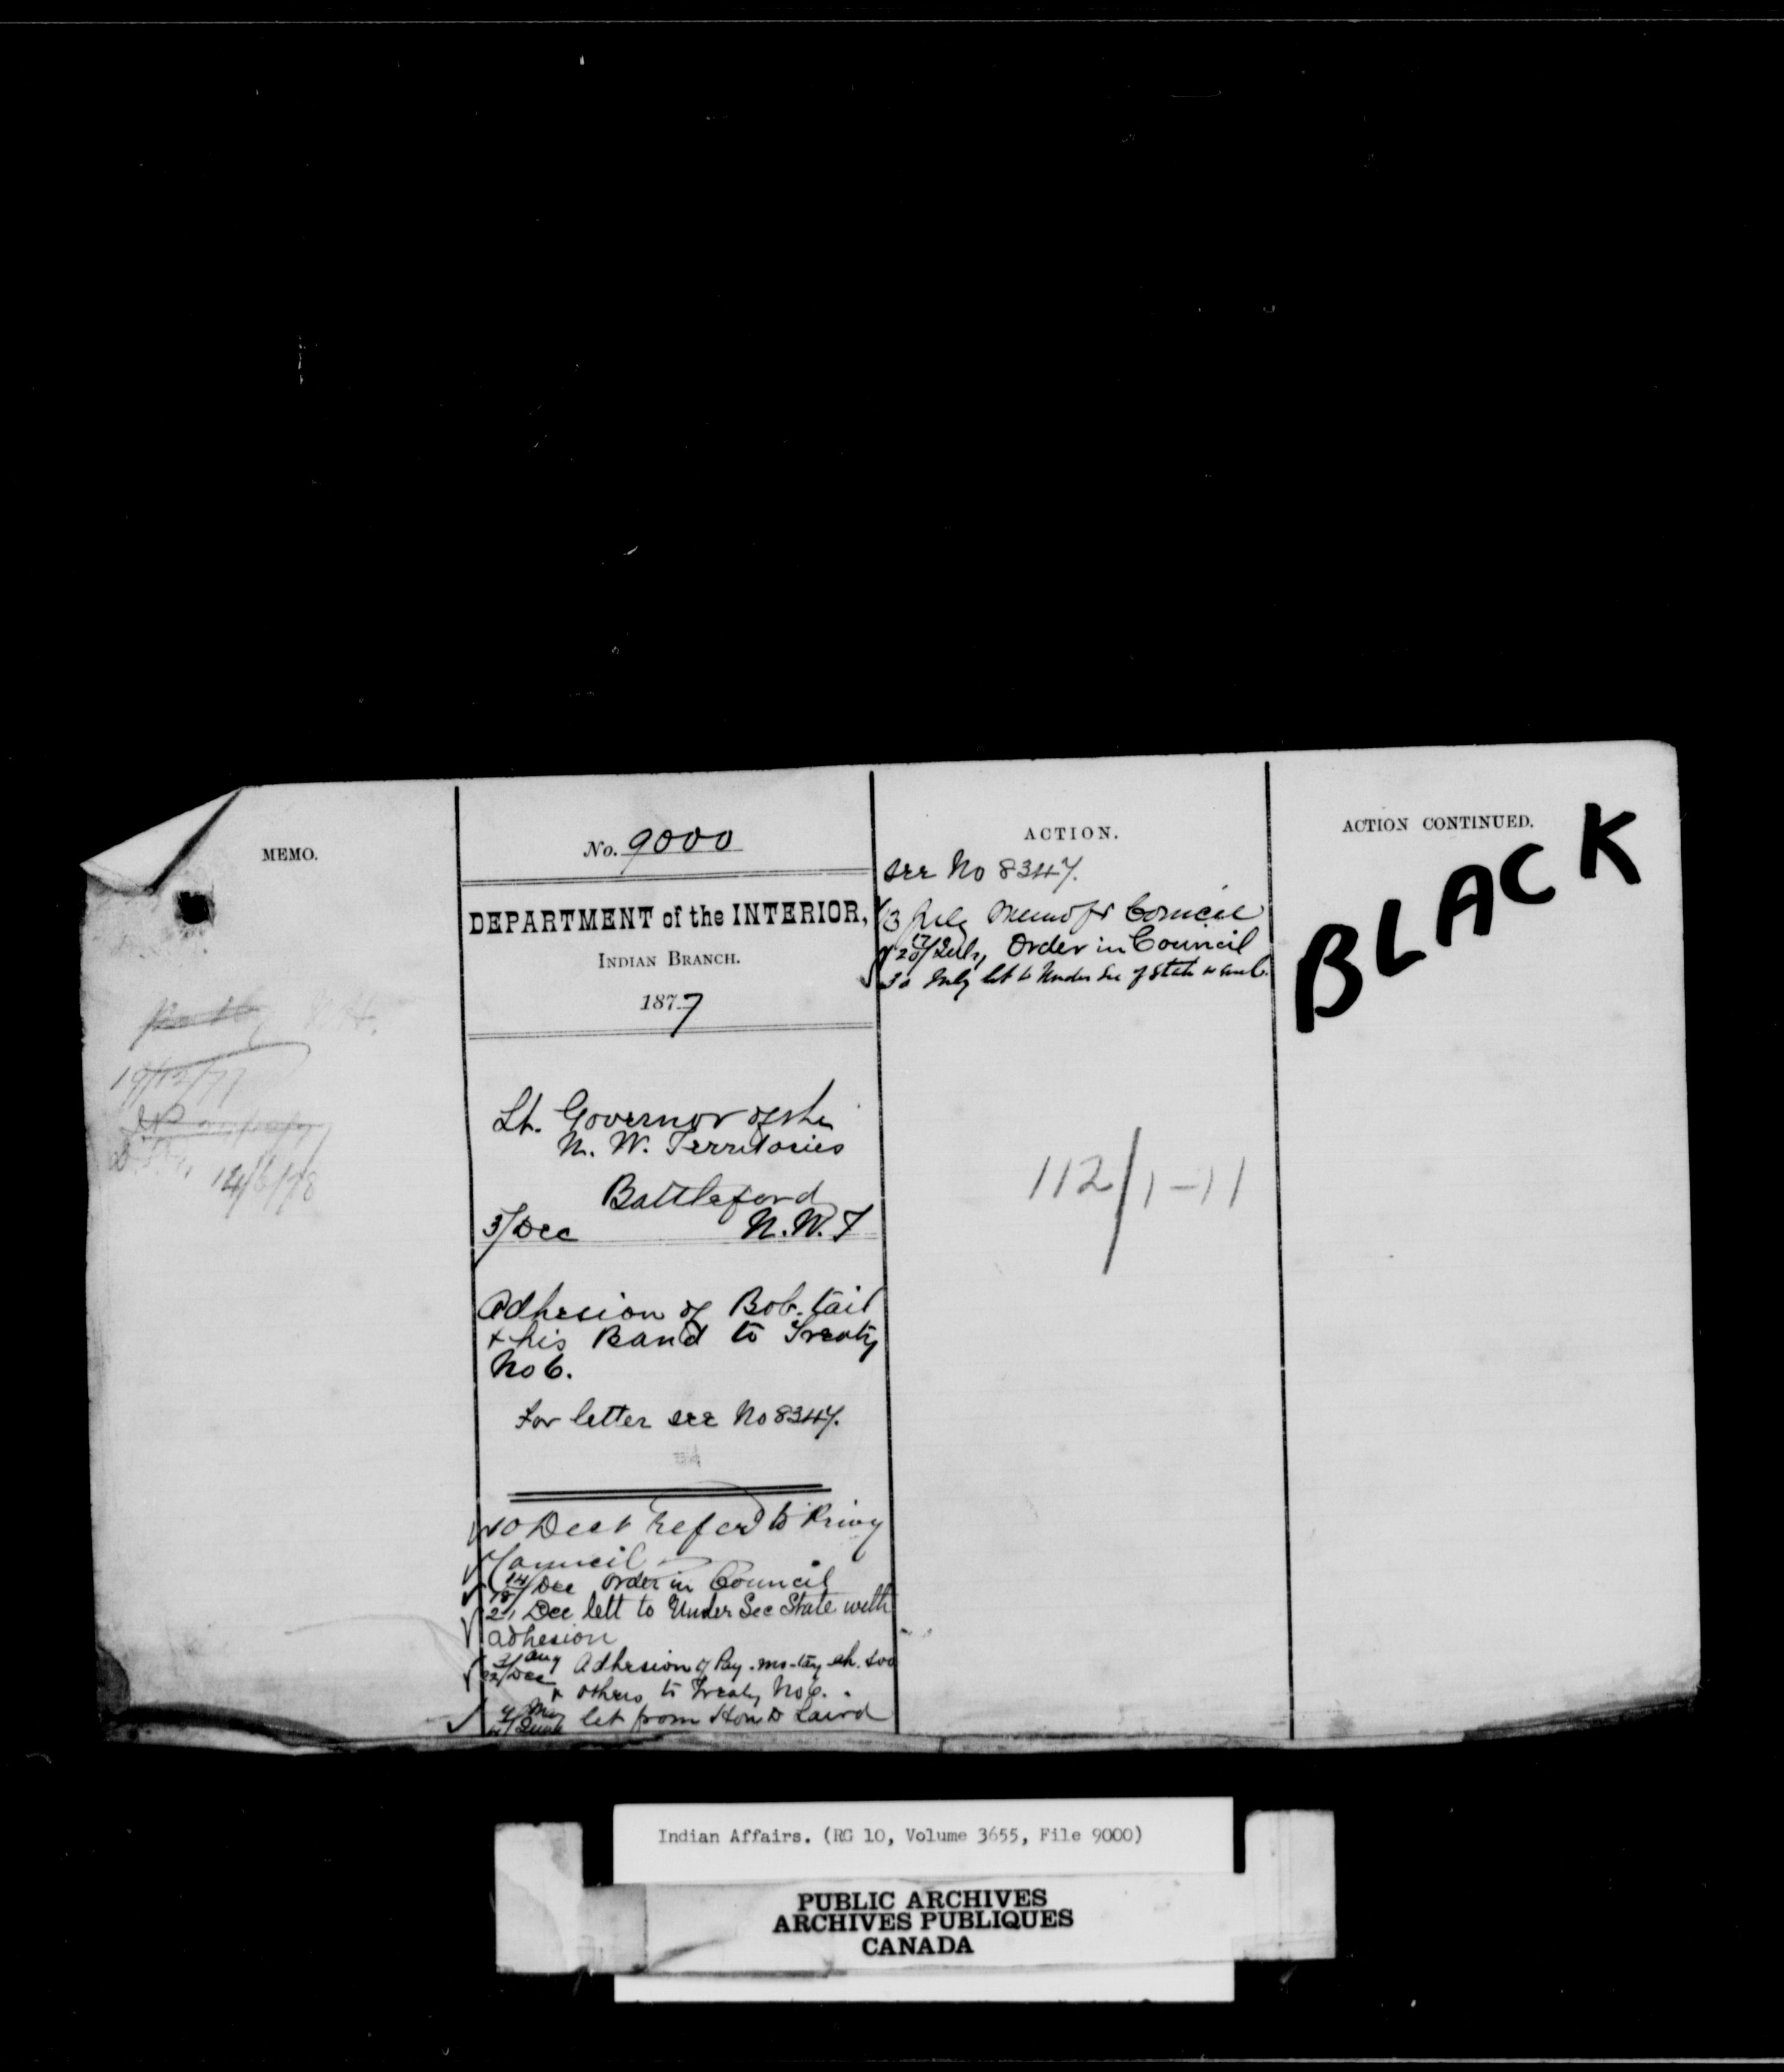 MEMO.
19/12/77
14/6/78
No. 9000
DEPARTMENT of the INTERIOR,
INDIAN BRANCH.
1877
Lt. Governor of the
N. W. Territories
Battleford
3/Dec N.W.T
Adhesion of Bob-tail
& his Band to Treaty
No 6.
For letter see No 8347.
Dect referd to Privy
Council
14/18/Dec Order in Council
21 Dec lett to Under Sec State with
adhesion
Aug
22/Dec Adhesion of Pay-mo-tay-ah-soo
& others to Treaty No 6.
May
June let from Hon D Laird
ACTION.
see No 8347.
13 July Memo fr Council
17/20/July Order in Council
July let to Under Sec of State
112/1-11
ACTION CONTINUED.
BLACK
Indian Affairs. (RG 10, Volume 3655, File 9000)
PUBLIC ARCHIVES
ARCHIVES PUBLIQUES
CANADA